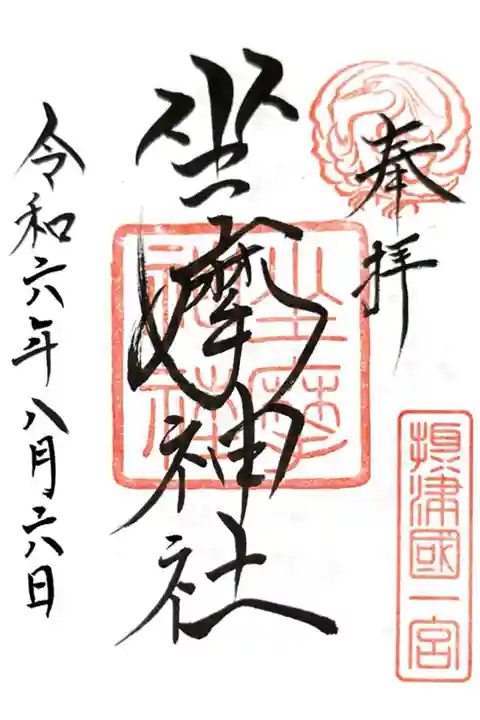 奉拝
摂津國一宮
坐摩神社
坐摩神社
令和六年八月六日